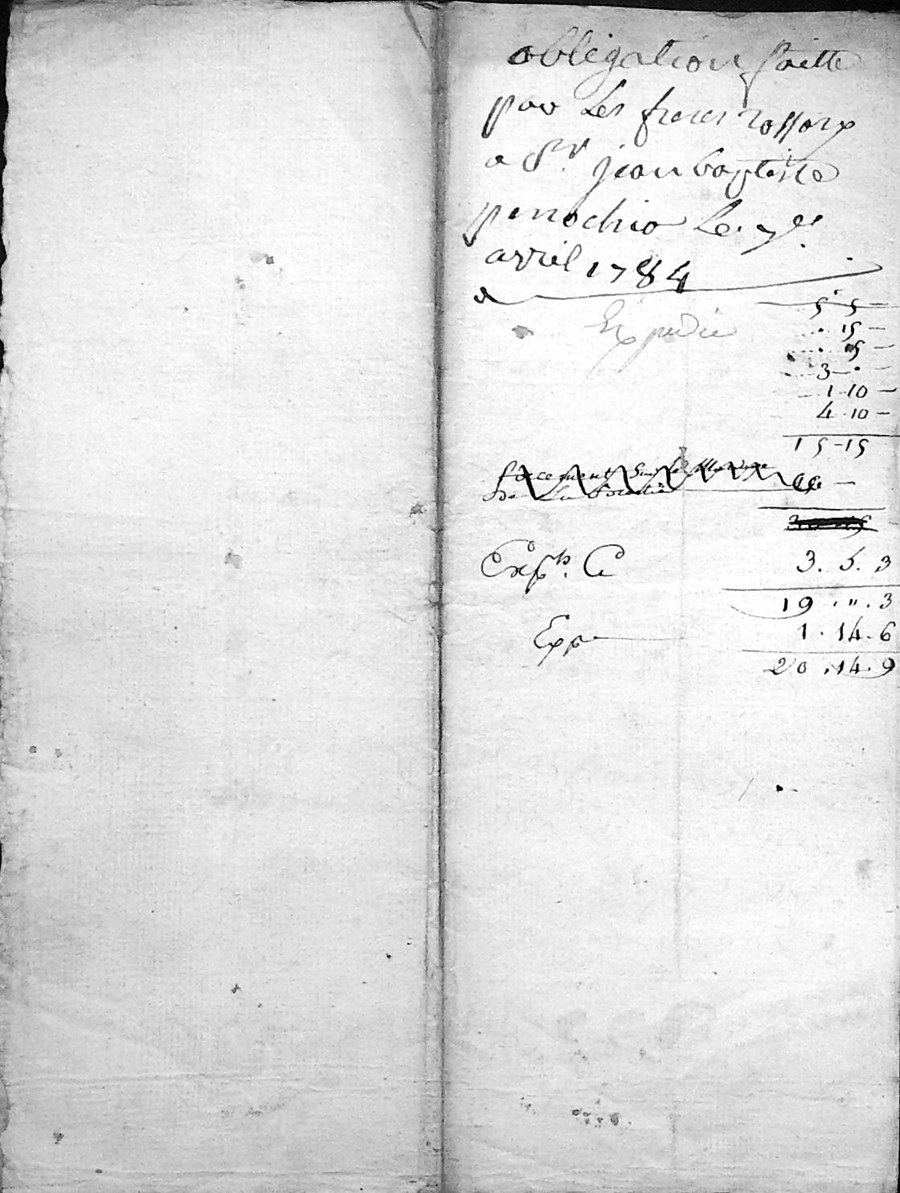 obligation faitte
par Les freres rossong
a Sr. jean baptiste
pinochio Le 7e.
avril 1784
Expedié
5 5 -
. 15 -
. 15 -
3 - .
1 - 10 -
4 - 10 -
15 - 15
De La
Expts. C
3. 5. 3
19 . " . 3
Exp
1 . 14 . 6
20 . 14 . 9